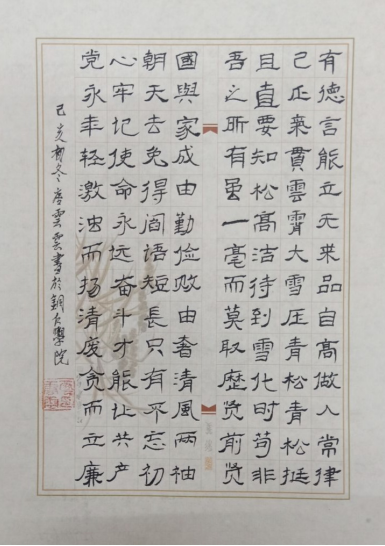 有德言能立无求品自高做人常律
己正来貫雲霄大雪压青松青松挺
且直要知松高洁待到雪化时苟非
吾之所有虽一毫而莫取歷贤前贤
國與家成由勤俭败由奢清風两袖
朝天去免得阎语短長只有不忘初
心牢记使命永远奋斗才能让共产
党永年轻激浊而扬清废贪而立廉
己亥初冬唐雲雲書於朝大學院